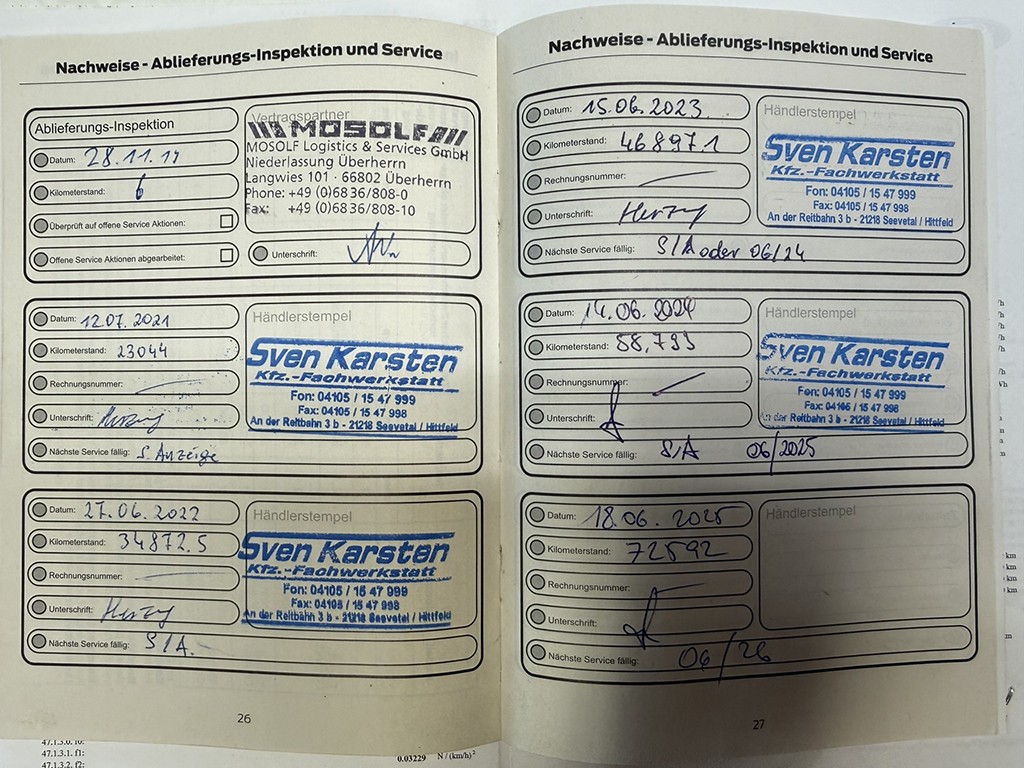 Nachweise - Ablieferungs-Inspektion und Service
Ablieferungs-Inspektion
Datum: 28.11.19
Kilometerstand: 6
Überprüft auf offene Service Aktionen:
Offene Service Aktionen abgearbeitet:
Vertragspartner
MOSOLF
MOSOLF Logistics & Services GmbH
Niederlassung Überherrn
Langwies 101 · 66802 Überherrn
Phone: +49 (0)6836/808-0
Fax: +49 (0)6836/808-10
Unterschrift:
Datum: 12.07.2021
Kilometerstand: 23044
Rechnungsnummer:
Unterschrift: Herzog
Nächste Service fällig: S. Anzeige
Händlerstempel
Sven Karsten
Kfz.-Fachwerkstatt
Fon: 04105 / 15 47 999
Fax: 04105 / 15 47 998
An der Reitbahn 3 b - 21218 Seevetal / Hittfeld
Datum: 27.06.2022
Kilometerstand: 34872.5
Rechnungsnummer:
Unterschrift: Herzog
Nächste Service fällig: S/A.
Händlerstempel
Sven Karsten
Kfz.-Fachwerkstatt
Fon: 04105 / 15 47 999
Fax: 04105 / 15 47 998
An der Reitbahn 3 b - 21218 Seevetal / Hittfeld
26
Nachweise - Ablieferungs-Inspektion und Service
Datum: 15.06.2023
Kilometerstand: 46897.1
Rechnungsnummer:
Unterschrift: Herzog
Nächste Service fällig: S/A oder 06/24
Händlerstempel
Sven Karsten
Kfz.-Fachwerkstatt
Fon: 04105 / 15 47 999
Fax: 04105 / 15 47 998
An der Reitbahn 3 b - 21218 Seevetal / Hittfeld
Datum: 14.06.2024
Kilometerstand: 58,793
Rechnungsnummer:
Unterschrift:
Nächste Service fällig: S/A 06/2025
Händlerstempel
Sven Karsten
Kfz.-Fachwerkstatt
Fon: 04105 / 15 47 999
Fax: 04105 / 15 47 998
An der Reitbahn 3 b - 21218 Seevetal / Hittfeld
Datum: 18.06.2025
Kilometerstand: 72592
Rechnungsnummer:
Unterschrift:
Nächste Service fällig: 06/26
Händlerstempel
27
47.1.3.1. f1:
47.1.3.2. f2:
0.03229 N / (km/h)²
km
km
km
km